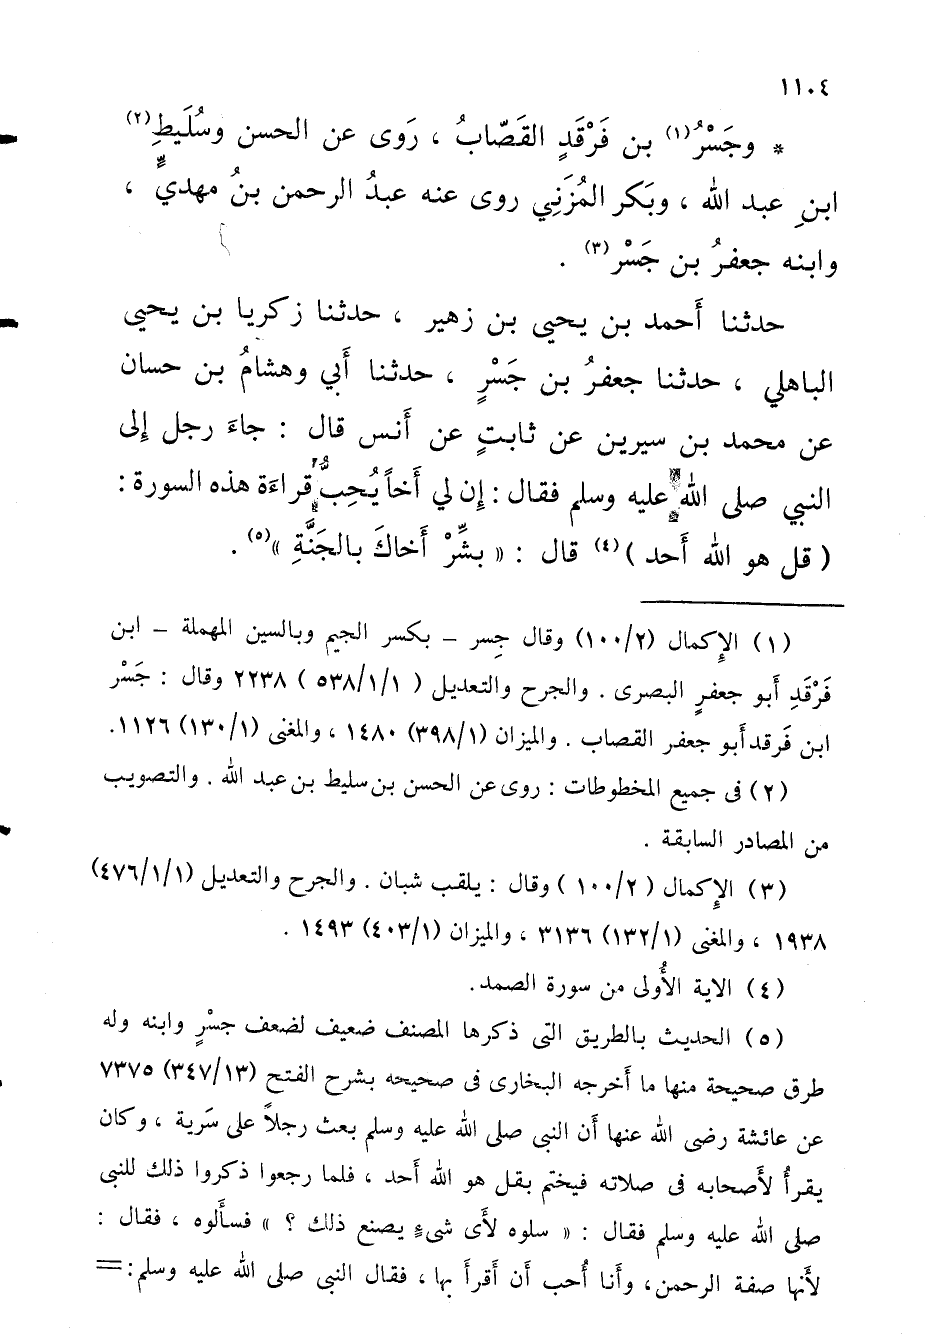 ١١٠٤
* وجَسْرُ(١) بن فَرْقَدٍ القَصّابُ ، رَوى عن الحسن وسُلَيطِ(٢)
ابنِ عبد الله ، وبَكر المُزَنِي روى عنه عبدُ الرحمن بنُ مهديٍّ ،
وابنه جعفرُ بن جَسْر(٣) .
حدثنا أَحمد بن يحيى بن زهير ، حدثنا زكريا بن يحيى
الباهلي ، حدثنا جعفرُ بن جَسْرٍ ، حدثنا أَبي وهشامُ بن حسان
عن محمد بن سيرين عن ثابتٍ عن أَنس قال : جاءَ رجل إلى
النبي صلى الله عليه وسلم فقال : إن لي أَخاً يُحِبُّ قراءَة هذه السورة :
( قل هو الله أَحد )(٤) قال : « بشِّرْ أَخاكَ بالجَنَّةِ »(٥) .
(١) الإكمال (١٠٠/٢) وقال جِسر – بكسر الجيم وبالسين المهملة – ابن
فَرْقَدِ أبو جعفرٍ البصرى . والجرح والتعديل ( ٥٣٨/١/١ ) ٢٢٣٨ وقال : جَسْر
ابن فَرقد أبو جعفر القصاب . والميزان (٣٩٨/١) ١٤٨٠ ، والمغنى (١٣٠/١) ١١٢٦.
(٢) فى جميع المخطوطات : روى عن الحسن بن سليط بن عبد الله . والتصويب
من المصادر السابقة .
(٣) الإكمال ( ١٠٠/٢ ) وقال : يلقب شبان . والجرح والتعديل (٤٧٦/١/١)
١٩٣٨ ، والمغنى (١٣٢/١) ٣١٣٦ ، والميزان (٤٠٣/١) ١٤٩٣ .
(٤) الاية الأُولى من سورة الصمد.
(٥) الحديث بالطريق التى ذكرها المصنف ضعيف لضعف جسْرٍ وابنه وله
طرق صحيحة منها ما أَخرجه البخارى فى صحيحه بشرح الفتح (٣٤٧/١٣) ٧٣٧٥
عن عائشة رضى الله عنها أَن النبى صلى الله عليه وسلم بعث رجلاً على سَرية ، وكان
يقرأُ لأَصحابه فى صلاته فيختم بقل هو الله أَحد ، فلما رجعوا ذكروا ذلك للنبى
صلى الله عليه وسلم فقال : « سلوه لأَى شىءٍ يصنع ذلك ؟ » فسأَلوه ، فقال :
لأَنها صفة الرحمن، وأَنا أُحب أَن أَقرأَ بها ، فقال النبى صلى الله عليه وسلم: =